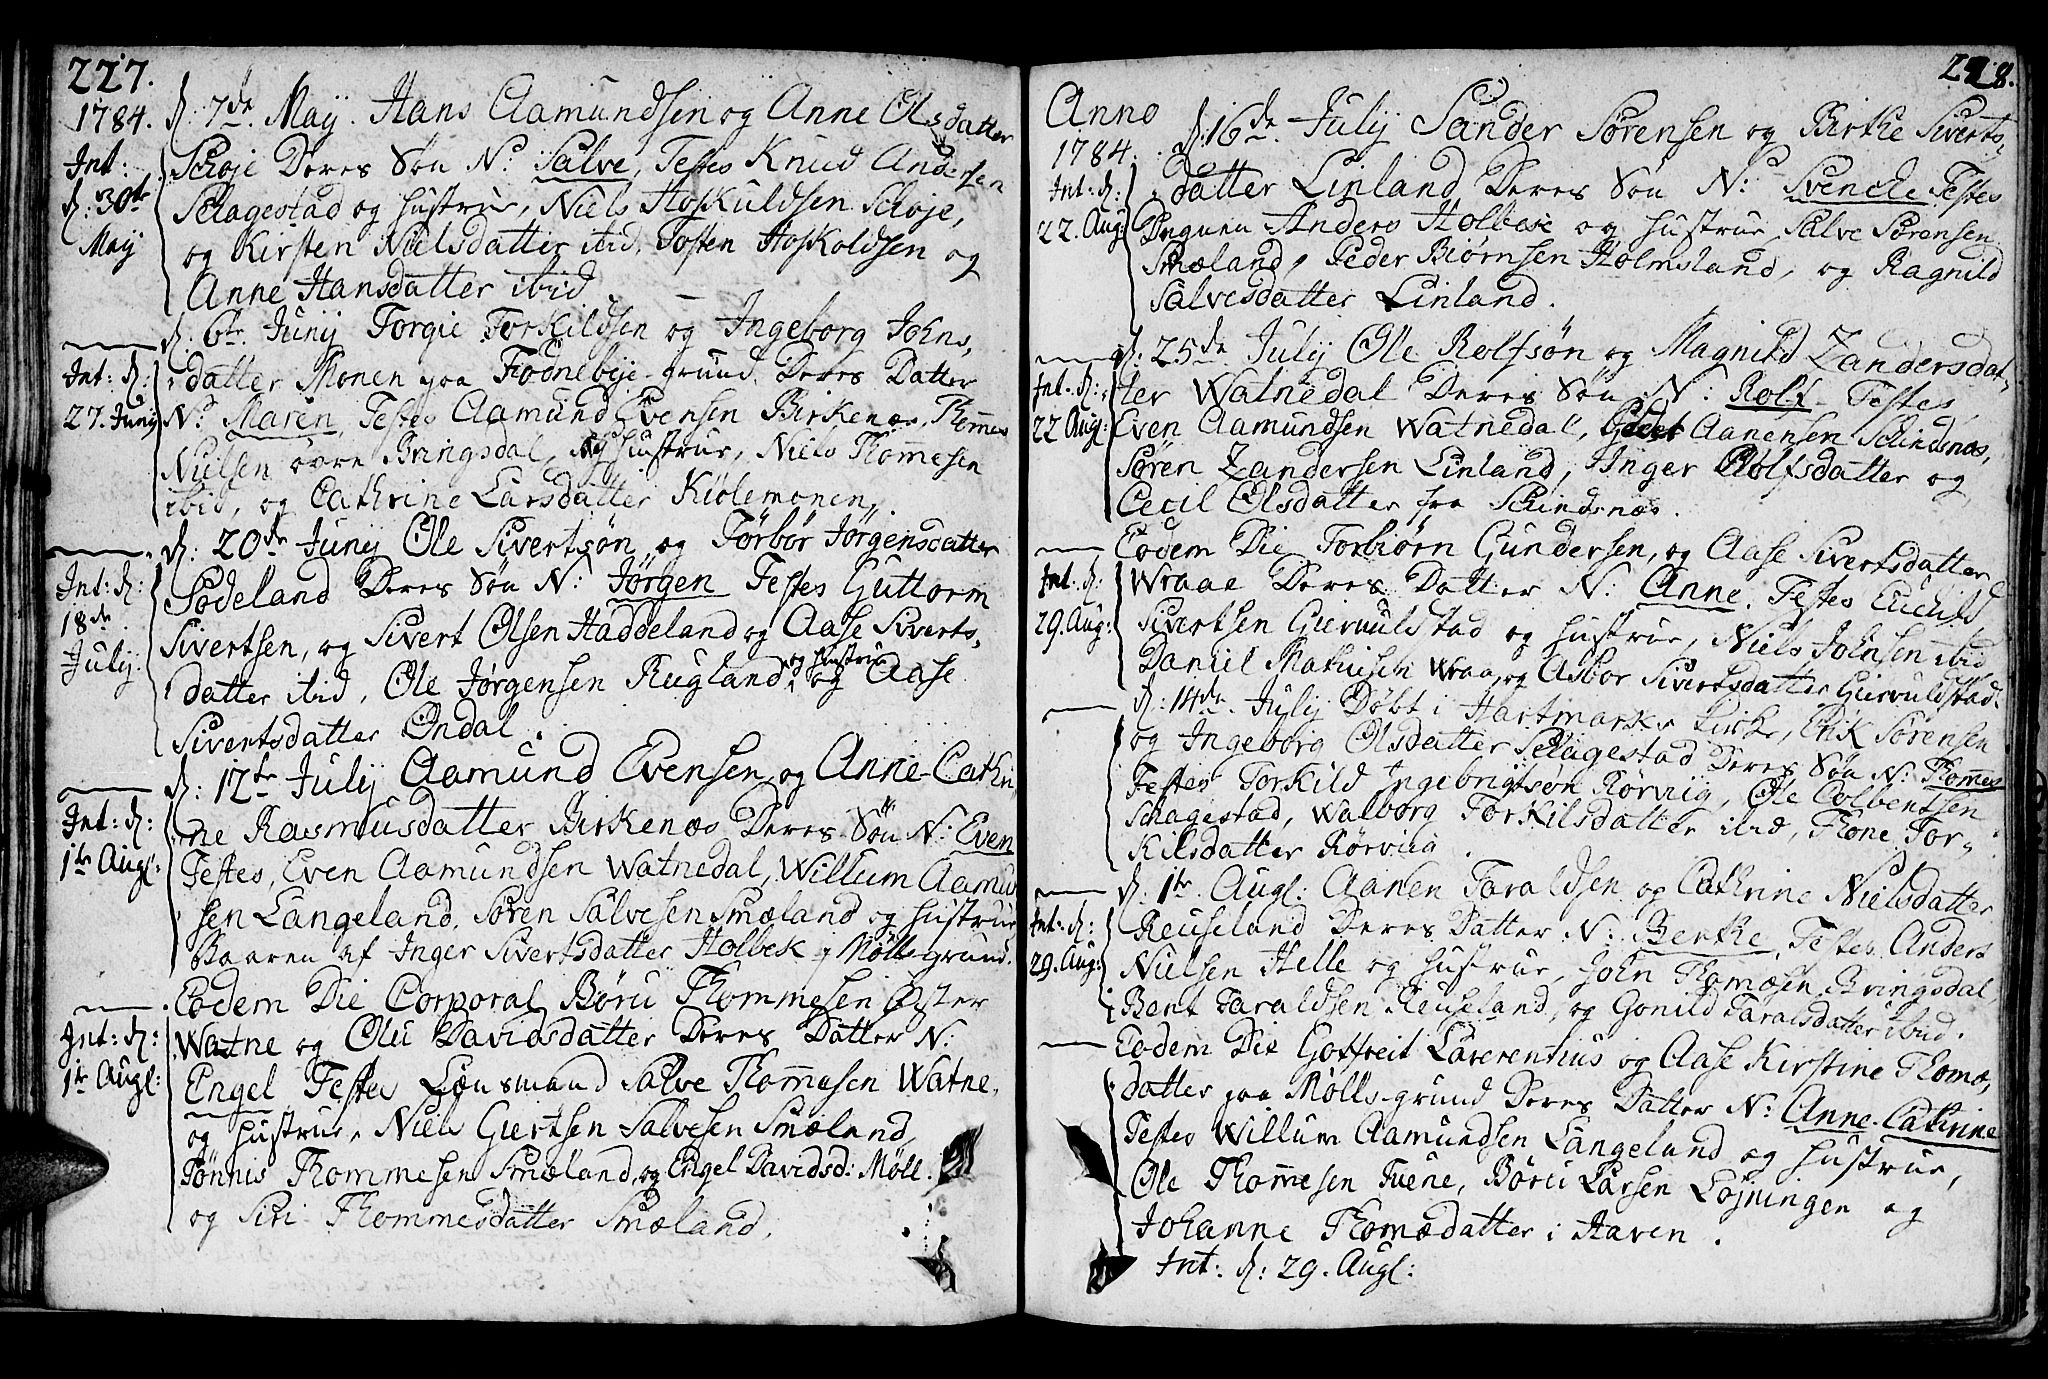 227.
1784. d: 7de Maij. Hans Aamundsen og Anne Olsdatter
Int: d: 30te Maij
Schøje Deres Søn N: Salve, Testes Knud Andersen
Selagestad og hustrue, Niels Hoskuldsen Schøje,
og Kirsten Nielsdatter ibid, Tosten Hoskoldsen og
Anne Hansdatter ibid.
d. 6te Junij Torgie Torkildsen og Ingeborg Johns,
Int: d: 27. Junij
datter Monen paa Fodnebye-grund. Deres Datter
N: Maren, Testes Aamund Evensen Birkenæs, Thommes
Nielsen øvre Bringsdal, og hustrue, Niels Thommesen
ibid, og Cathrine Larsdatter Kiølemonen.
d: 20de Junij Ole Sivertsøn og Tørbør Jørgensdatter
Int: d: 18de Julij
Sødeland Deres Søn N: Jørgen Testes Guttorm
Sivertsen, og Sivert Olsen Haddeland og Aase Siverts,
datter ibid, Ole Jørgensen Rugland og hustrue og Aase
Sivertsdatter Ondal.
d: 17te Julij Aamund Evensen og Anne-Cathri,
Int: d: 1te Augl:
ne Rasmusdatter Birkenæs Deres Søn N: Even
Testes, Even Aamundsen Watnedal, Willum Aamun
sen Langeland. Søren Salvesen Smæland og hustrue
Baaren af Inger Sivertsdatter Holbek i Mølls grund.
Eodem Die Corporal Børu Thommesen Øster
Int: d: 1te Augl:
Watne og Olu Davidsdatter Deres Datter N:
Engel Testes Lænsmand Salve Thommesen Watne,
og hustrue, Niels Giertsen Salvesen Smæland,
Tønnis Thommesen Smæland, og Engel Davidsd: Møll.
og Siri Thommesdatter Smæland.
228.
Anno 1784.
d: 16de Julij Sander Sørensen og Birthe Siverts,
Int: d: 22. Aug:
datter Linland Deres Søn N: Svenche Testes
Anders Holbek og hustrue Salve Sørensen
Smæland, Peder Biørnsen Holmsland, og Ragnild
Salvesdatter Linland.
d: 25de Julij Ole Rolfsøn og Magnild Zandersdat,
Int. d: 22 Augl:
ter Watnedal Deres Søn N: Rolf Testes,
Even Aamundsen Watnedal, Aanensen Schindsnæs,
Søren Zandersen Linland, Inger Rolfsdatter og
Cecil Olsdatter fra Schindsnæs.
Eodem Die Torbiørn Gundersen, og Aase Sivertsdatter
Int: d: 29. Aug:
Wraae Deres Datter N: Anne. Testes Euchild
Sivertsen Giervulstad og hustrue, Niels Johnsen ibid
Daniel Mathisen Wraa, og Asbor Sivertsdatter Giervuldstad.
d: 14de Julij Døbt i Hartmarks Kirke, Erik Sørensen
og Ingeborg Olsdatter Selagestad Deres Søn N: Thommes
Testes Torkild Ingebrigtsøn Rørviig, Ole Colbentsen
Schagestad, Walborg Torkilsdatter ibid, Thone Tor-
kilsdatter Rørviig.
d. 1te. Augl: Aanen Taraldsen og Cathrine Nielsdatter
Int: d: 29. Aug:
Reuseland Deres Datter N: Berthe, Testes Anders
Nielsen Helle og hustrue, John Thomæsen Bringsdal,
Bent Taraldsen Reuseland, og Gonild Taralsdatter ibid.
Eodem Die Gotfreit Laverentius og Aase Kirstine Thomæ,
datter paa Mølls-grund Deres Datter N: Anne-Cathrine
Testes Willum Aamundsen Langeland og hustrue,
Ole Thommesen Tuene, Børu Larsen Løjningen og
Johanne Thomædatter i Haven.
Int: d: 29. Augl: